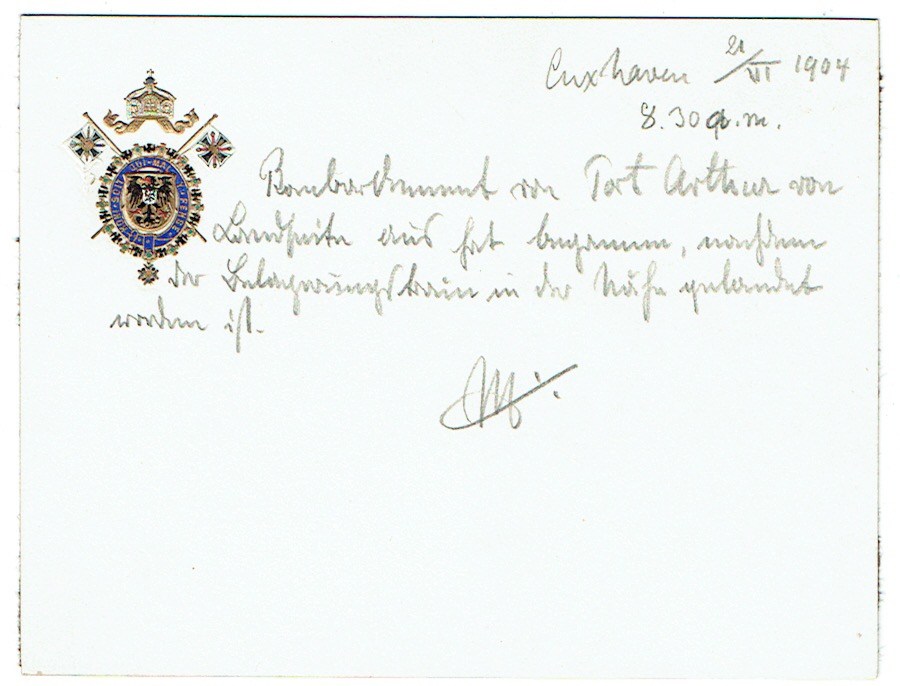 Cuxhaven 21/VI 1904
8.30 a.m.
HONI · SOIT · QUI · MAL · Y · PENSE
Bombardement von Port Arthur von
Landseite aus hat begonnen, nachdem
der Belagerungstrain in der Nähe gelandet
worden ist.